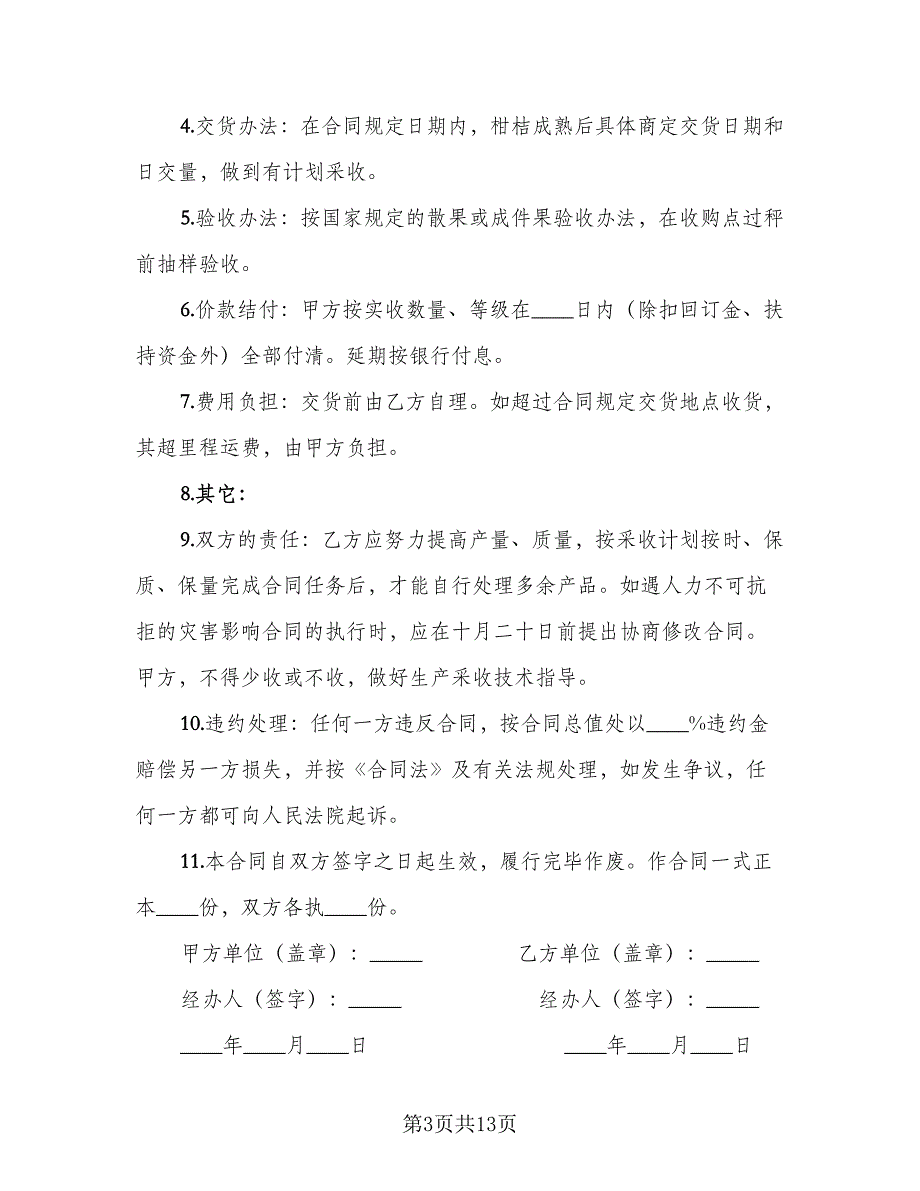 4.交货办法：在合同规定日期内，柑桔成熟后具体商定交货日期和
日交量，做到有计划采收。
5.验收办法：按国家规定的散果或成件果验收办法，在收购点过秤
前抽样验收。
6.价款结付：甲方按实收数量、等级在____日内（除扣回订金、扶
持资金外）全部付清。延期按银行付息。
7.费用负担：交货前由乙方自理。如超过合同规定交货地点收货，
其超里程运费，由甲方负担。
8.其它：
9.双方的责任：乙方应努力提高产量、质量，按采收计划按时、保
质、保量完成合同任务后，才能自行处理多余产品。如遇人力不可抗
拒的灾害影响合同的执行时，应在十月二十日前提出协商修改合同。
甲方，不得少收或不收，做好生产采收技术指导。
10.违约处理：任何一方违反合同，按合同总值处以____%违约金
赔偿另一方损失，并按《合同法》及有关法规处理，如发生争议，任
何一方都可向人民法院起诉。
11.本合同自双方签字之日起生效，履行完毕作废。作合同一式正
本____份，双方各执____份。
甲方单位（盖章）：_____ 乙方单位（盖章）：_____
经办人（签字）：_____ 经办人（签字）：_____
____年____月____日 ____年____月____日
第3页共13页